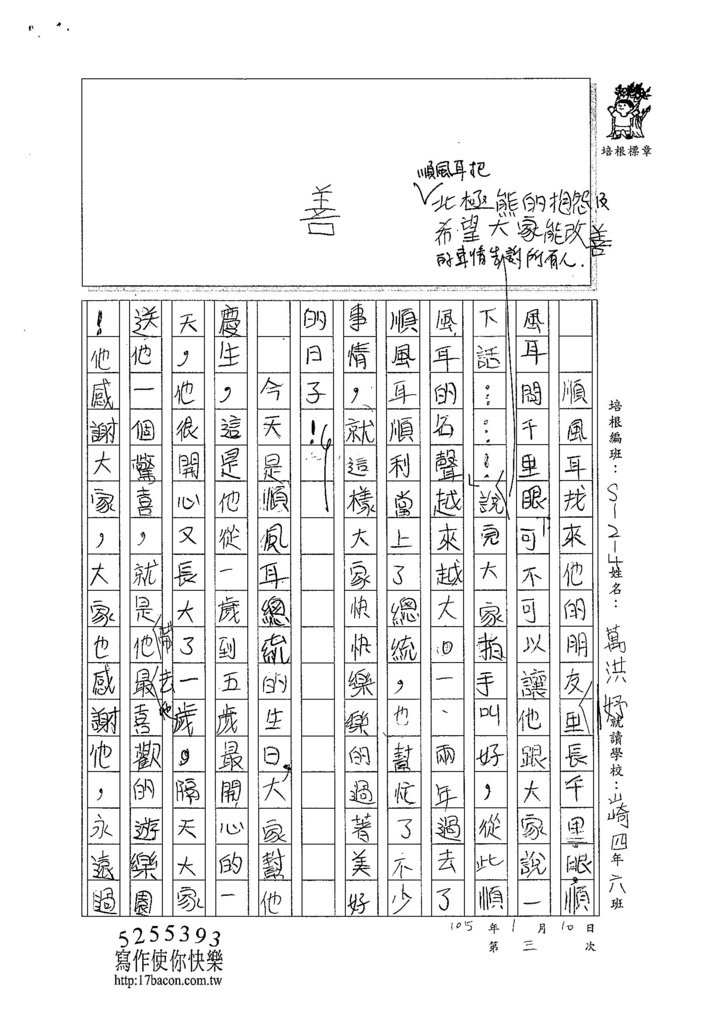 培根標章
順風耳把
北極熊的想怨及
希望大家能改善
的事情告訴所有人.
善
培根編班：S-2-4姓名：萬洪妤就讀學校：山崎四年六班
順風耳找來他的朋友里長千里眼,順
風耳問千里眼可不可以讓他跟大家說一
下話……!說完大家拍手叫好,從此順
風耳的名聲越來越大。一、兩年過去了
順風耳順利當上了總統,也幫忙了不少
事情,就這樣大家快快樂樂的過著美好
的日子!
今天是順風耳總統的生日,大家幫他
慶生,這是他從一歲到五歲最開心的一
天,他很開心又長大了一歲。隔天大家
送他一個驚喜,就是帶他去他最喜歡的遊樂園
!他感謝大家,大家也感謝他,永遠過
105年1月10日
第三次
5255393
寫作使你快樂
http:17bacon.com.tw